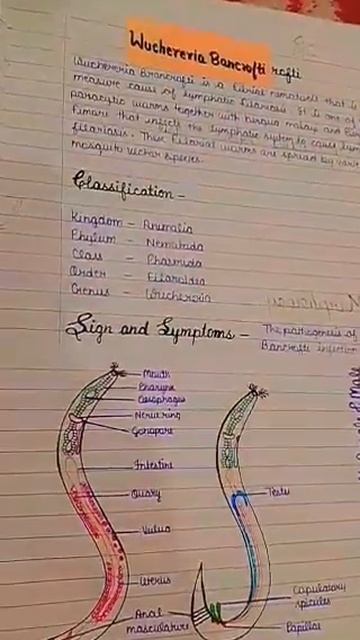 Wuchereria Bancrofti rofti
Wuchereria Brancrofti is a filarial nematode that is
measure cause of lymphatic filariasis. It is one of
paracytic worms together with brugia malayi and
that infect the lymphatic system to cause
filariasis. These filarial worms are spread by
mosquito vector species.
Classification -
Kingdom - Animalia
Phylum - Nematoda
Class - Phasmida
Order - Filaroidea
Genus - Wuchereria
Sign and Symptoms - The pathogenesis of
Bancrofti infection
Mouth
Pharynx
Oesophagus
Nerve ring
Gonopore
Intestine
Ovary
Testis
Vulva
Uterus
Anal
masculature
Capulatory
spicules
Papillae